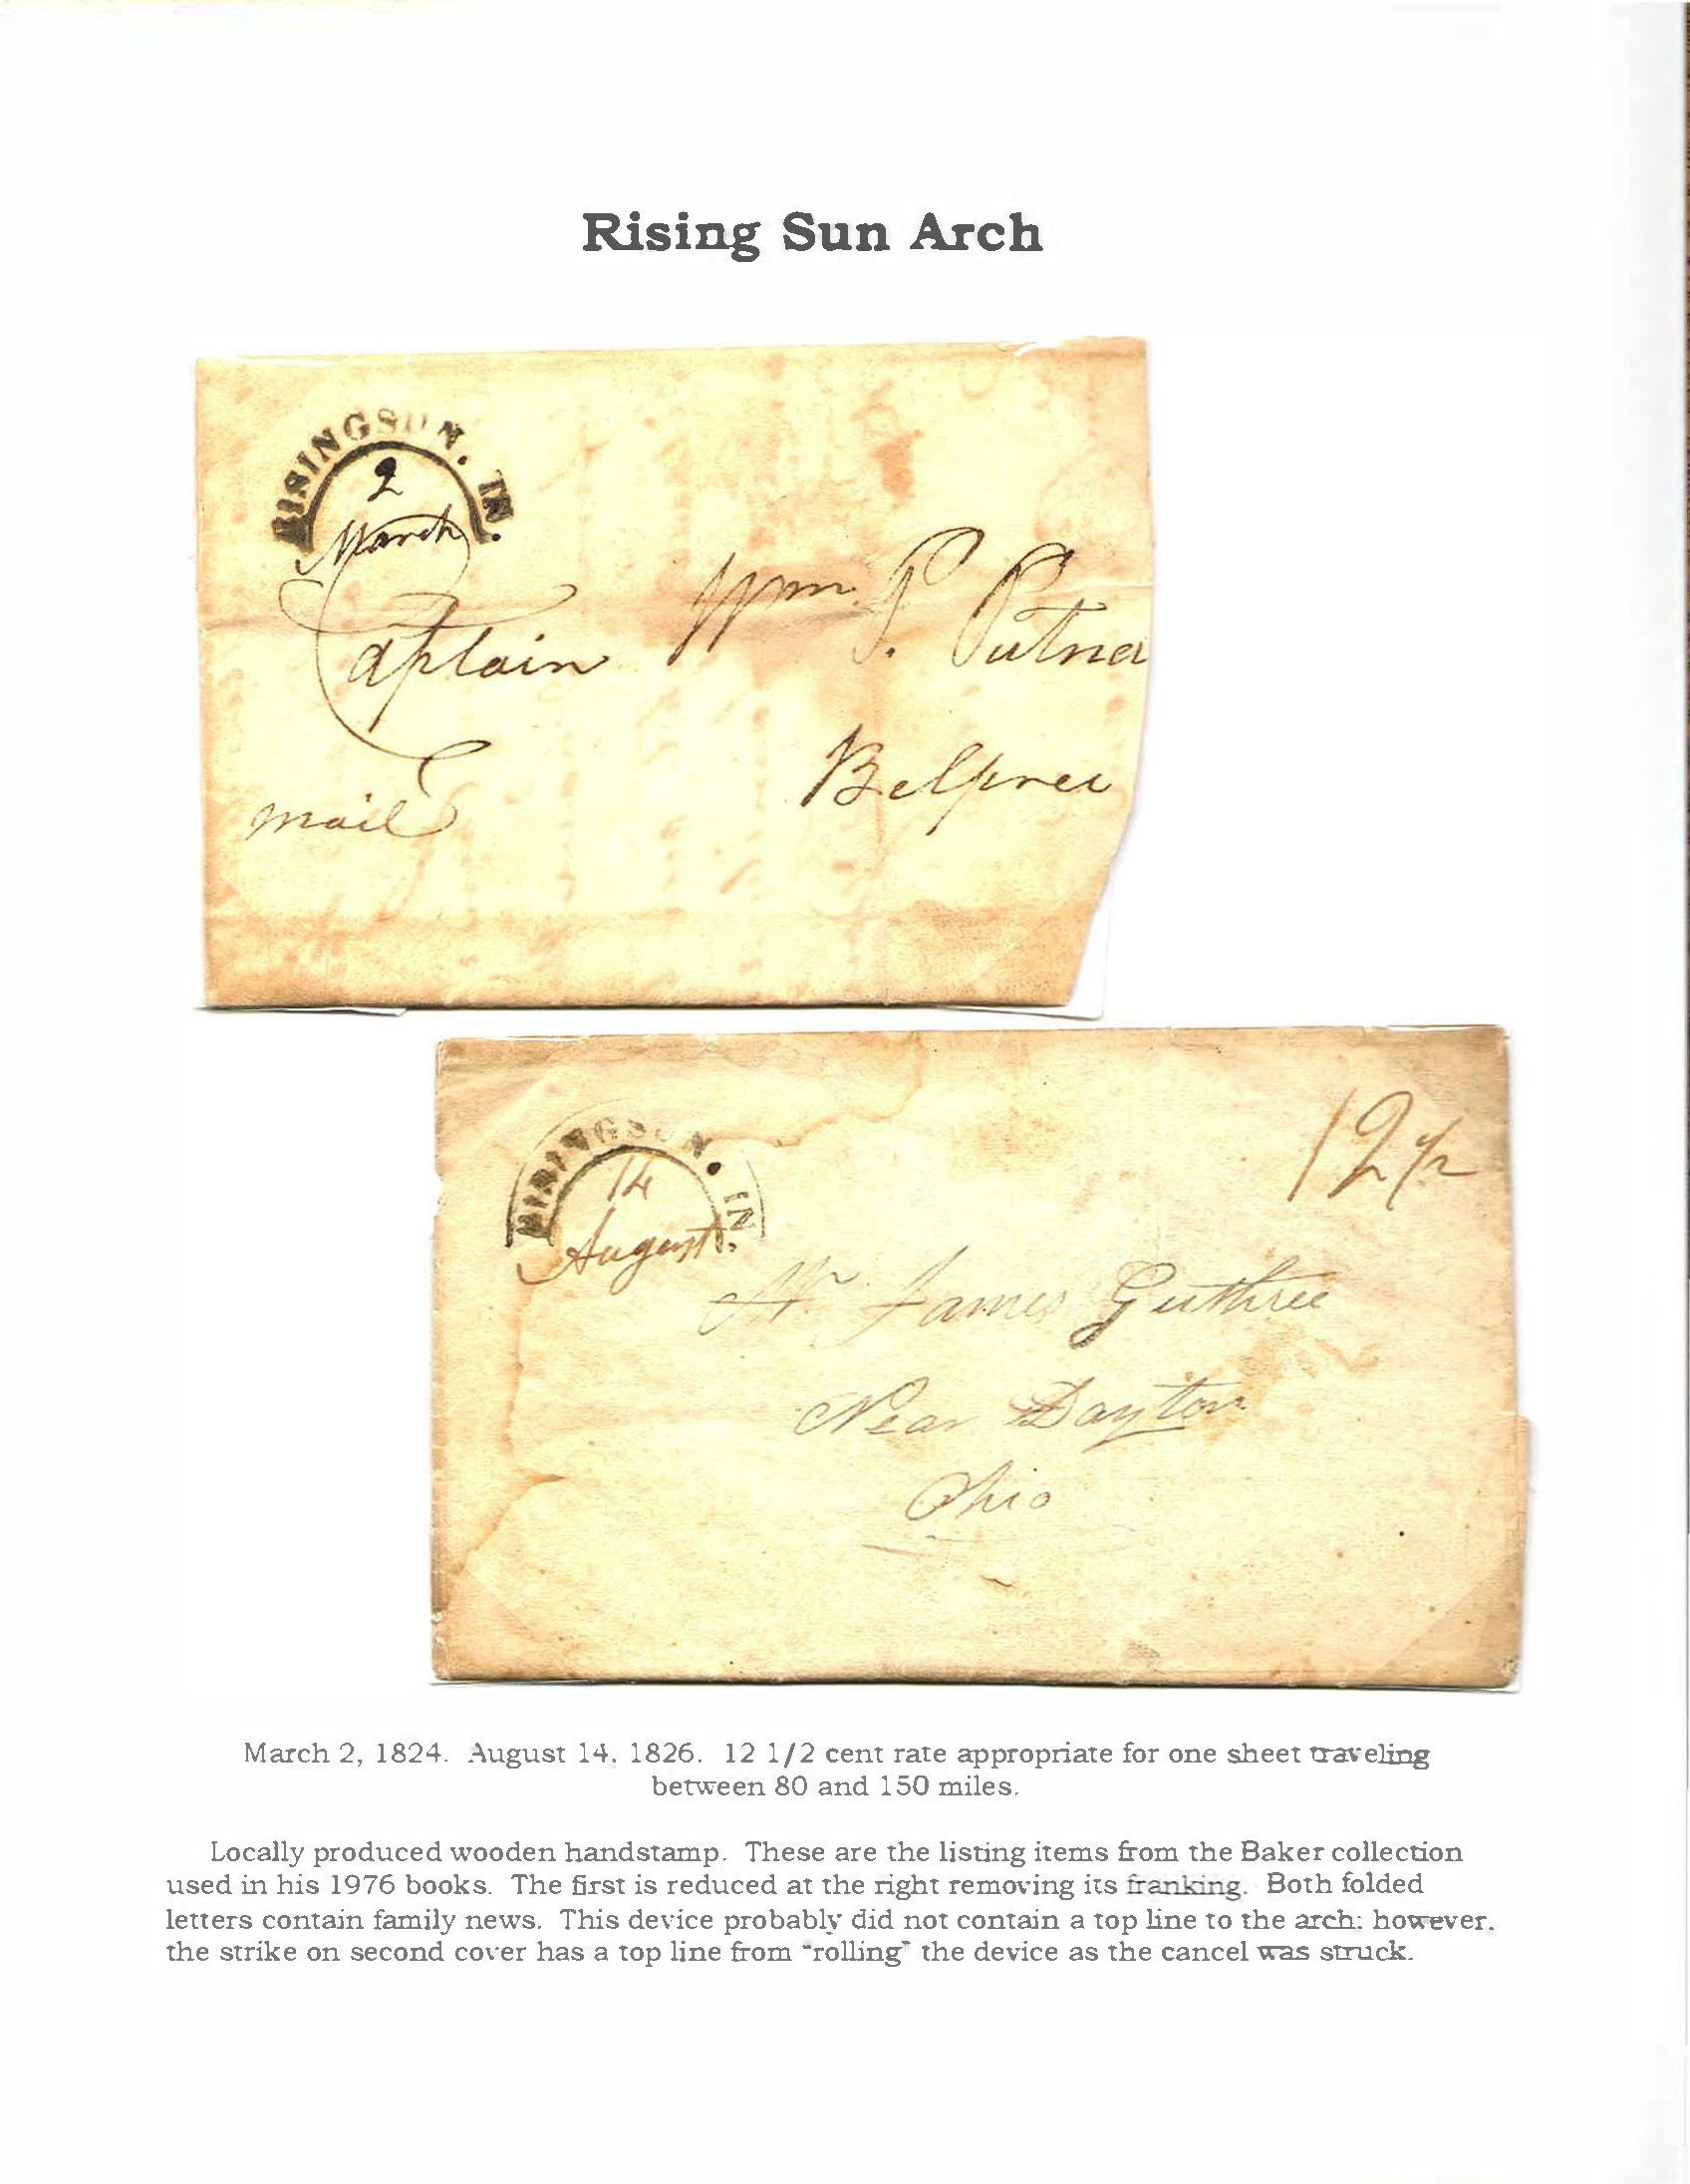 Rising Sun Arch
RISINGSUN. IN.
2
March
Captain Wm. P. Putna
Belpree
mail
RISINGSUN. IN.
14
August
12 1/2
Mr James Guthree
Near Dayton
Ohio
March 2, 1824. August 14, 1826. 12 1/2 cent rate appropriate for one sheet traveling
between 80 and 150 miles.
Locally produced wooden handstamp. These are the listing items from the Baker collection
used in his 1976 books. The first is reduced at the right removing its franking. Both folded
letters contain family news. This device probably did not contain a top line to the arch; however,
the strike on second cover has a top line from "rolling" the device as the cancel was struck.